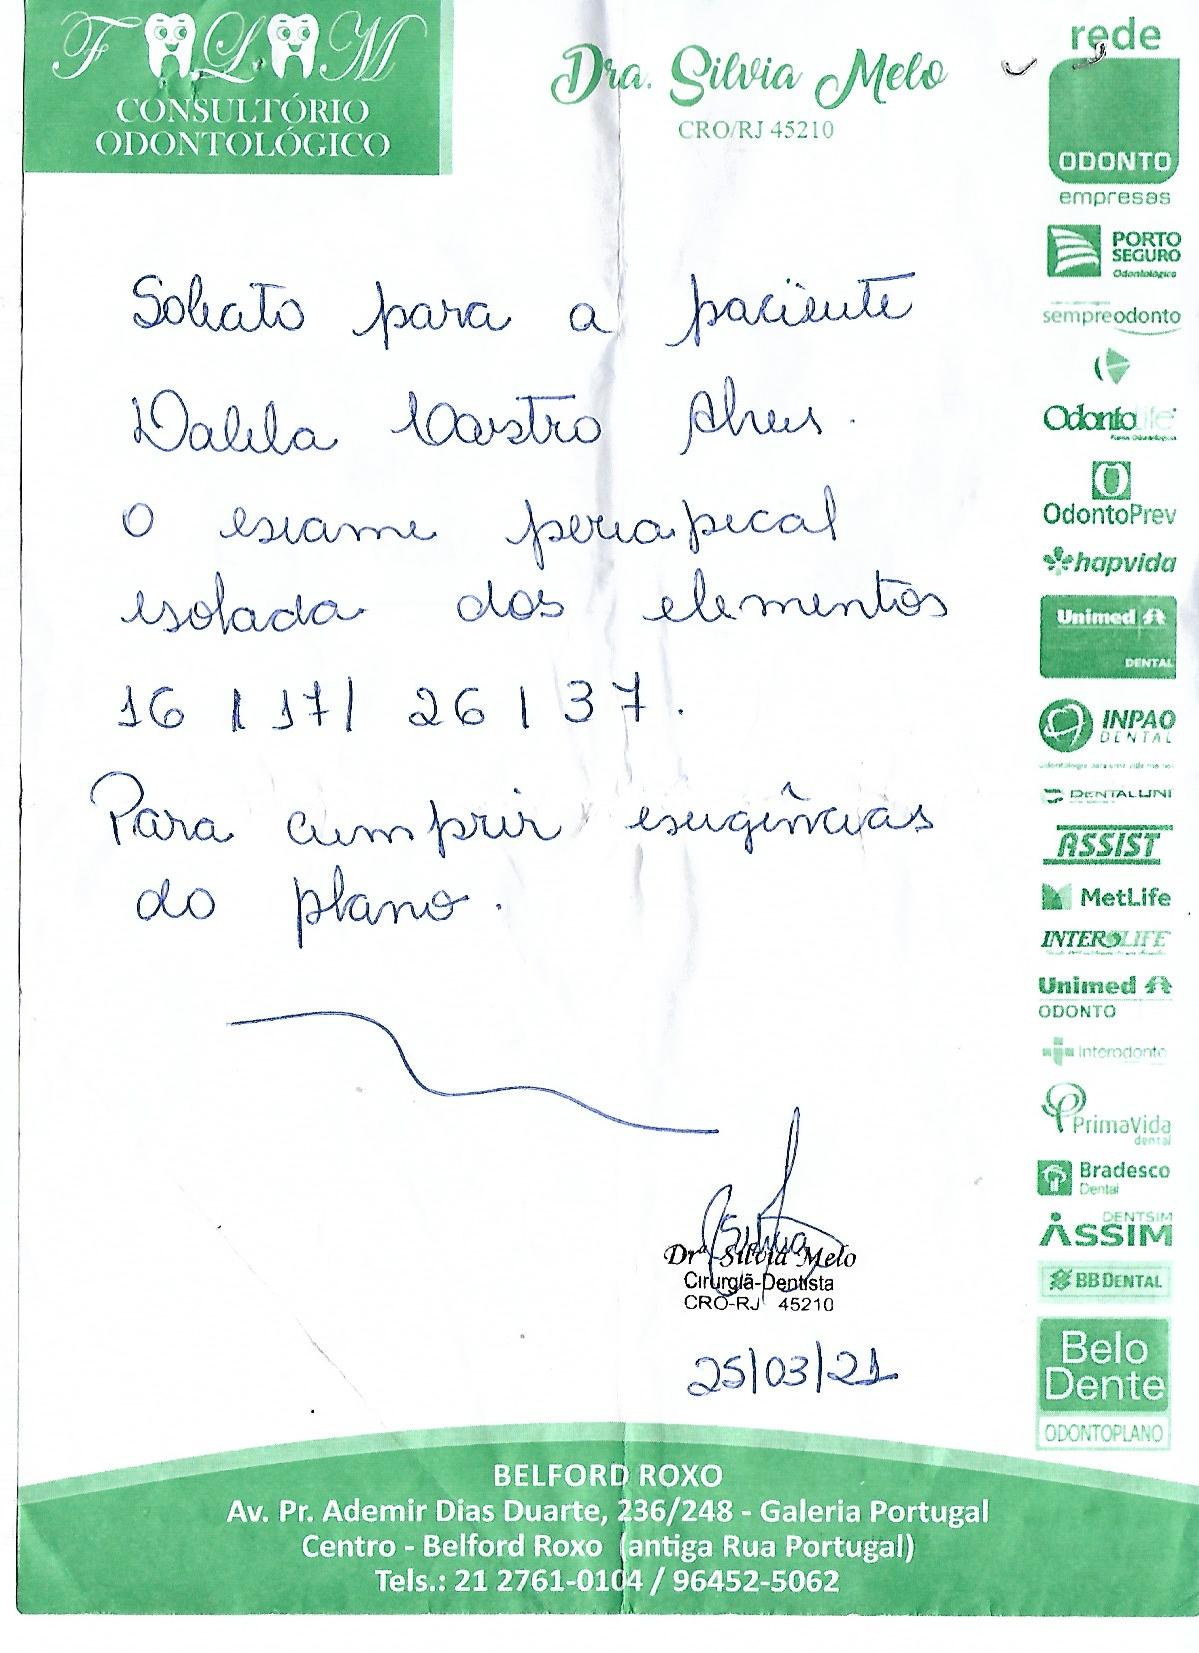 F L M
CONSULTÓRIO
ODONTOLÓGICO
Dra. Silvia Melo
CRO/RJ 45210
Solicito para a paciente
Dalila Castro Alves.
O exame periapical
isolada dos elementos
16 / 17 / 26 / 37.
Para cumprir exigências
do plano.
Drª Silvia Melo
Cirurgiã-Dentista
CRO-RJ 45210
25/03/21
rede
ODONTO
empresas
PORTO
SEGURO
Odontológico
sempreodonto
Odontolife
OdontoPrev
hapvida
Unimed
DENTAL
INPAO
DENTAL
DENTALUNI
ASSIST
MetLife
INTEROLIFE
Unimed
ODONTO
Interodonto
PrimaVida
dental
Bradesco
Dental
DENTSIM
ASSIM
BB DENTAL
Belo
Dente
ODONTOPLANO
BELFORD ROXO
Av. Pr. Ademir Dias Duarte, 236/248 - Galeria Portugal
Centro - Belford Roxo (antiga Rua Portugal)
Tels.: 21 2761-0104 / 96452-5062